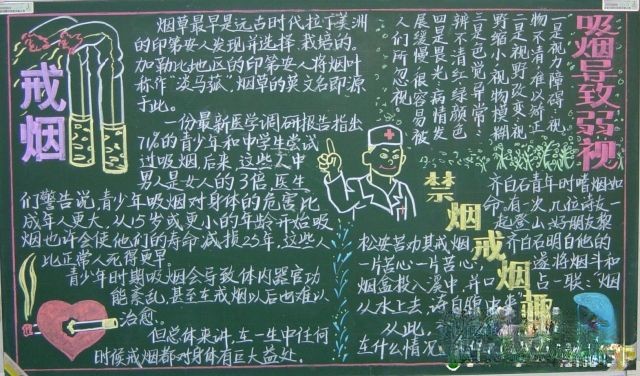 戒烟
烟草最早是远古时代拉丁美洲
的印第安人发现并选择栽培的。
加勒比地区的印第安人将烟叶
称作“淡马菰”,烟草的英文名即源
于此。
一份最新医学调研报告指出
71%的青少年和中学生尝试
过吸烟,后来,这些人中
男人是女人的3倍,医生
们警告说,青少年吸烟对身体的危害比
成年人更大,从15岁或更小的年龄开始吸
烟也许会使他们的寿命减损25年,这些人
比正常人死得更早。
青少年时期吸烟会导致体内器官功
能紊乱,甚至在戒烟以后也难以
治愈。
但总体来讲,在一生中任何
时候戒烟都对身体有巨大益处。
吸烟导致弱视
一是视力障碍,视
物不清难以矫正
二是视野改变,视
野缩小物模糊
三是色觉异常:
辨不清红绿颜色
四是畏光病情发
展缓慢很容易被
人们所忽视
禁烟戒烟趣
齐白石青年时嗜烟如
命,有一次,几位诗友一
起登山,好朋友黎
松安苦力其戒烟,齐白石明白他的
一片苦心一片苦心,遂将烟斗和
烟盒投入溪中,并口占一联:“烟
从水上去,诗自腹中来”
从此,
在什么情况